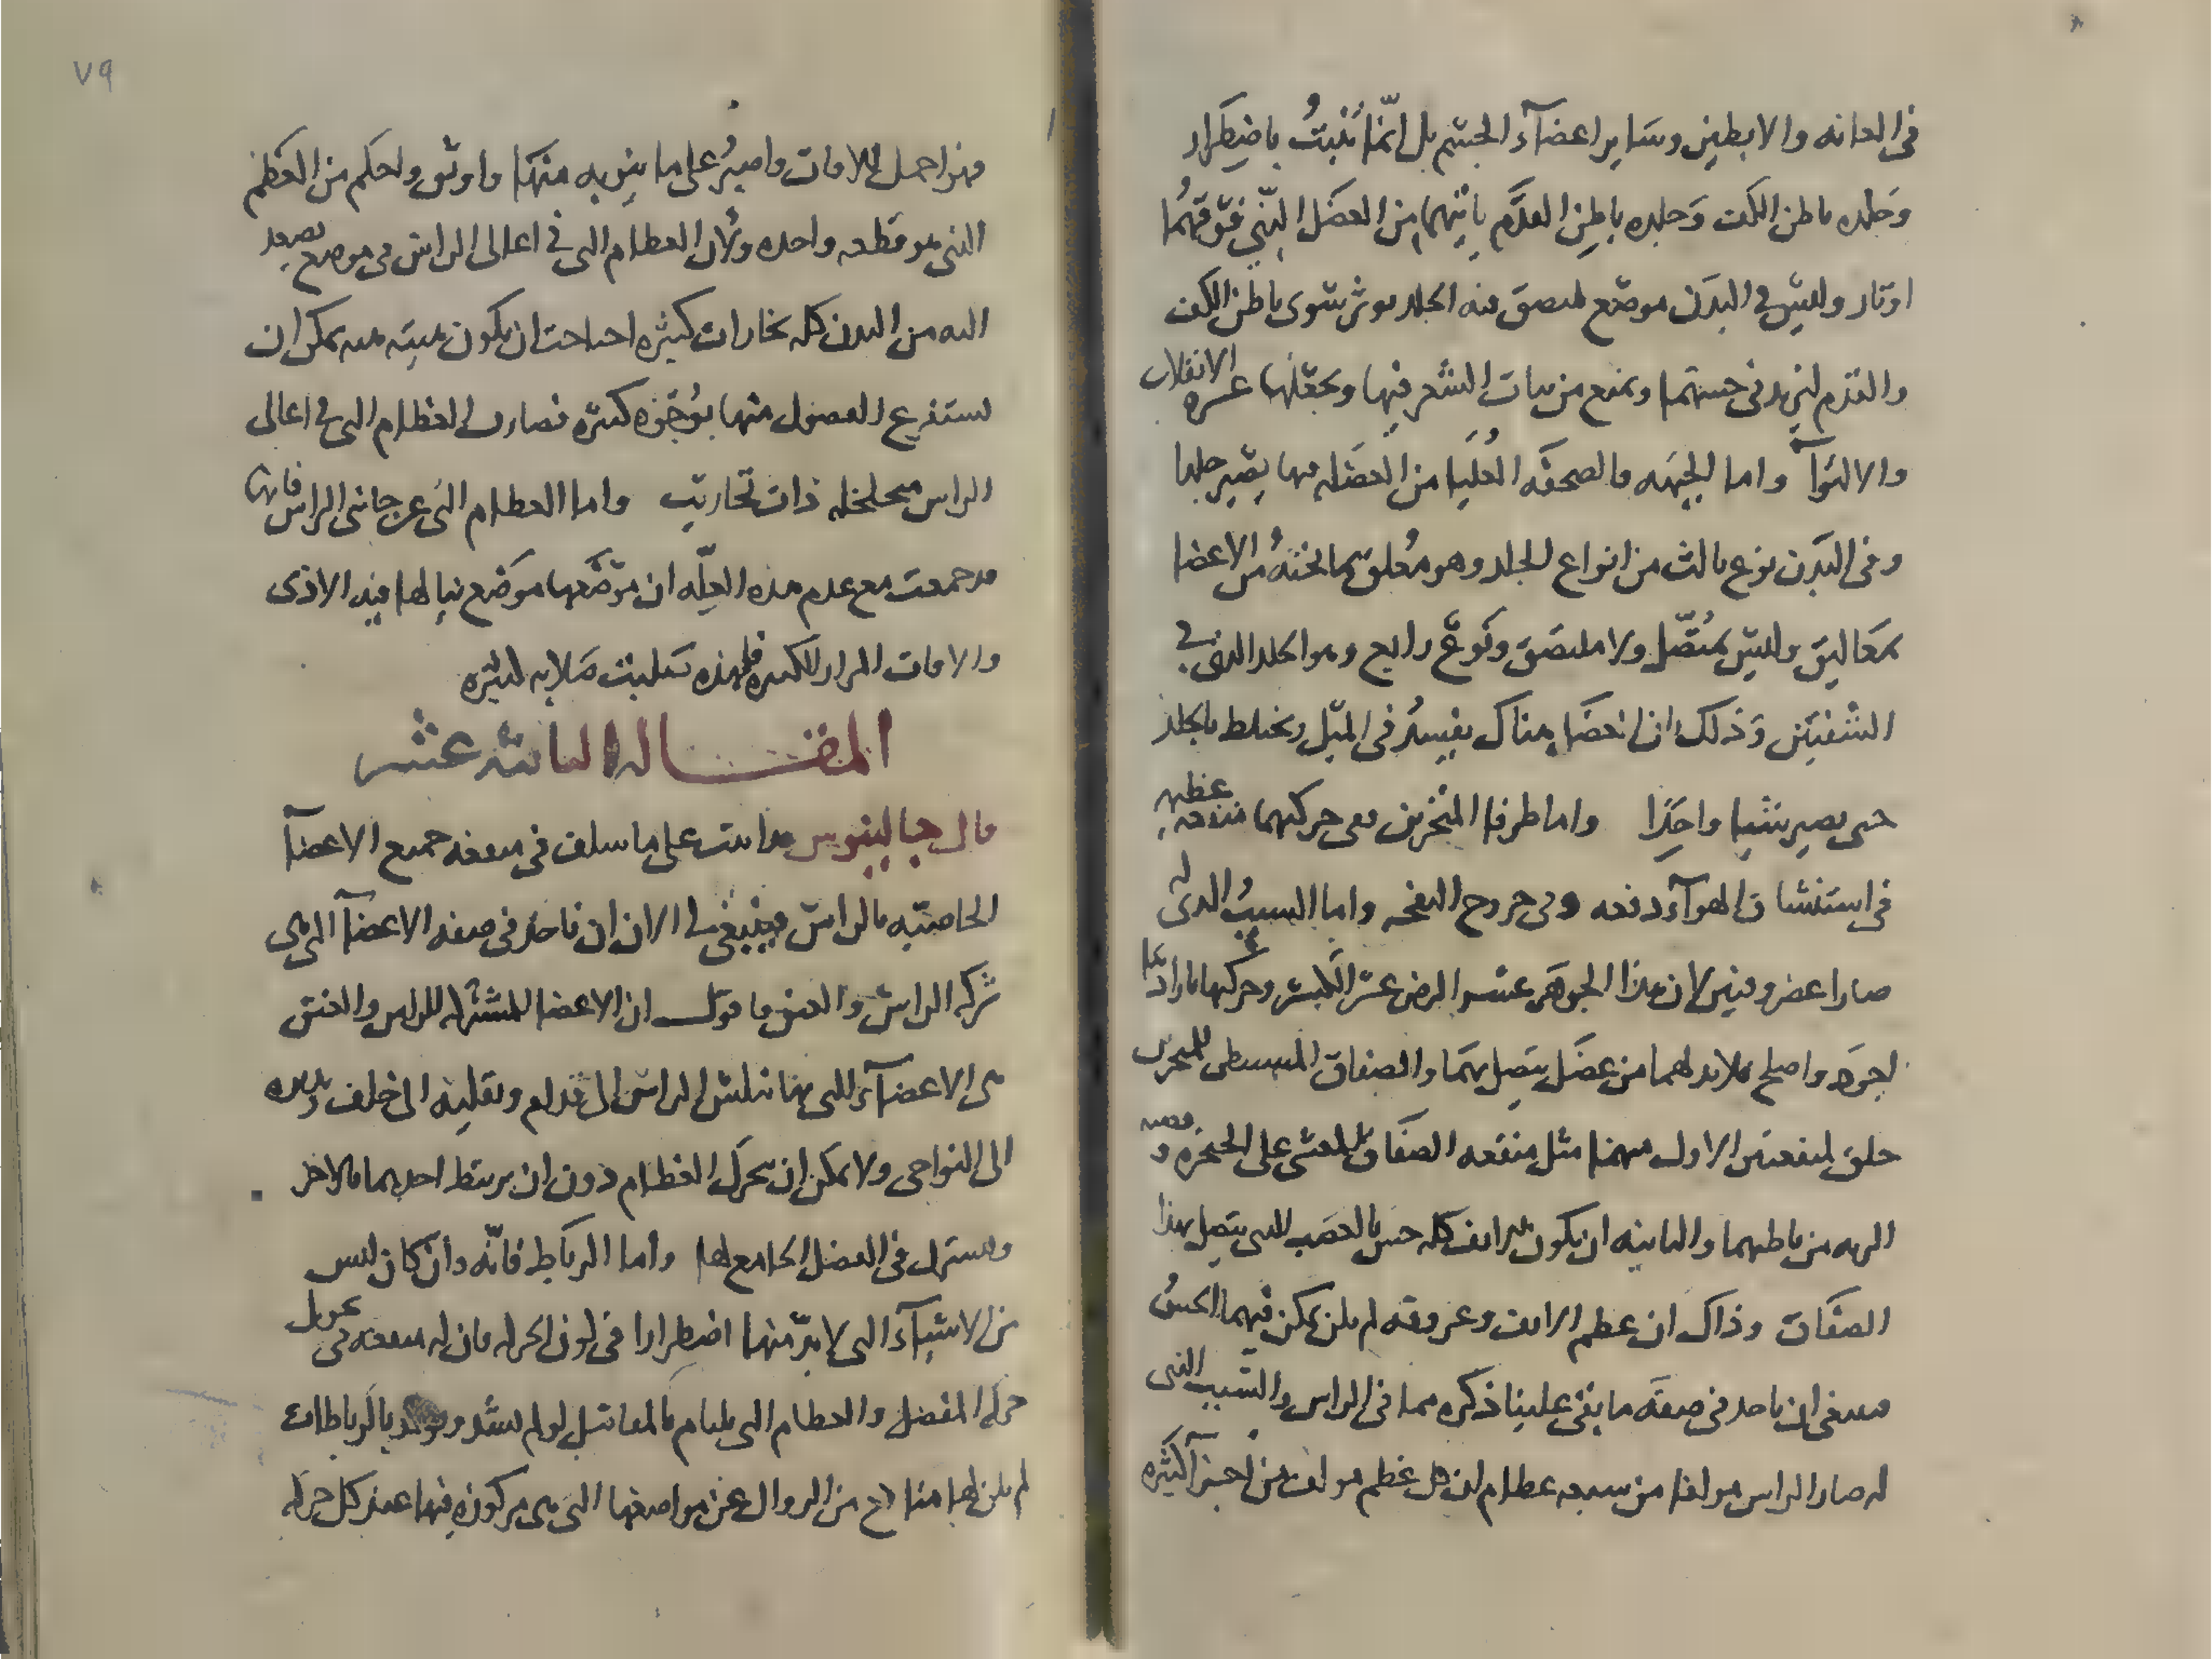 في العانه والابطين وساير اعضآء الجسم بل انما تنبت باضطرار
وجلده باطن الكف وجلده باطن القدم ياتيهما من العضل الذي فوقهما
اوتار وليس في البدن موضع ملتصق فيه الجلد بوتر سوى باطن الكف
والقدم ليزيد في حسهما ويمنع من نبات الشعر فيها ويجعلها عسره الانقلاب
والالتوآ واما الجبهه فالصحفه العليا من العضله فيها يصير جلدا
وفي البدن نوع ثالث من انواع الجلد وهو معلق بما تحته من الاعضا
بمعاليق وليس بمتصل ولا ملتصق ونوع رابع وهو الجلد الذي في
الشفتين وذلك ان العضل هناك يختلط بالجلد
حتى يصير شيا واحدا واما طرفا المنخرين ففي حركتهما منفعه عظيمه
في استنشاق الهوآء دفعه وفي خروج النفخه واما السبب الذي له
صارا غضروفين لان هذا الجوهر عسر الرض عسر الكسر وحركتها بارادتنا
اجود واصلح فلابد لهما من عضل يتصل بهما والصفاق المستبطن للمنخرين
خلق لمنفعتين الاولى منهما مثل منفعه الصفاق المغشي على الحنجره وقصبه
الريه من باطنهما والثانيه ان يكون للانف كله حس بالعصب الذي يتصل بهذا
الصفاق وذاك ان عظم الانف وغضروفه لم يكن يمكن فيهما الحس
فينبغي ان ناخذ في صفه ما بقي علينا ذكره مما في الراس والسبب الذي
له صار الراس مولفا من سبعه عظام ان كل عظم مولف من اجزآ كثيره
٧٩
فهو احمل للافات واصبر على ما ينوبه منها واوثق واحكم من العظم
الذي هو قطعه واحده ولان العظام التي في اعالي الراس في موضع يصعد
اليه من البدن كله بخارات كثيره احتاجت ان يكون يمكن ان
تستفرغ الفضول منها بوجوه كثيره فصارت العظام التي في اعالي
الراس متخلخله ذات تجاويف واما العظام التي عن جانبي الراس فانها
قد جمعت مع عدم هذه العله ان موضعها موضع ينالها فيه الاذى
والافات المرار الكثيره فلهذه جعلت صلابه كثيره
المقاله الثانيه عشر
قال جالينوس قد اتيت على ما سلف في منفعه جميع الاعضآ
الخاصيه بالراس فينبغي لي الان ان ناخذ في صفه الاعضآ التي هي
شركه الراس والعنق فاقول ان الاعضا المشتركه للراس والعنق
هي الاعضآء التي بها ننكس الراس الى قدام ونقلبه الى خلف ونديره
الى النواحي ولا يمكن ان تحرك العظام دون ان يرتبط احدهما بالاخر
ويشترك في المفصل الجامع لها واما الرباط فانه وان كان ليس
من الاشيآء التي لا بد منها اضطرارا في كون الحركه فان له منفعه في
حركه المفصل والعظام التي تلتام بالمفاصل لو لم تشد وتوثق بالرباطات
لم يكن لها مانع من الزوال عن مواضعها التي هي مركوزه فيها عند كل حركه